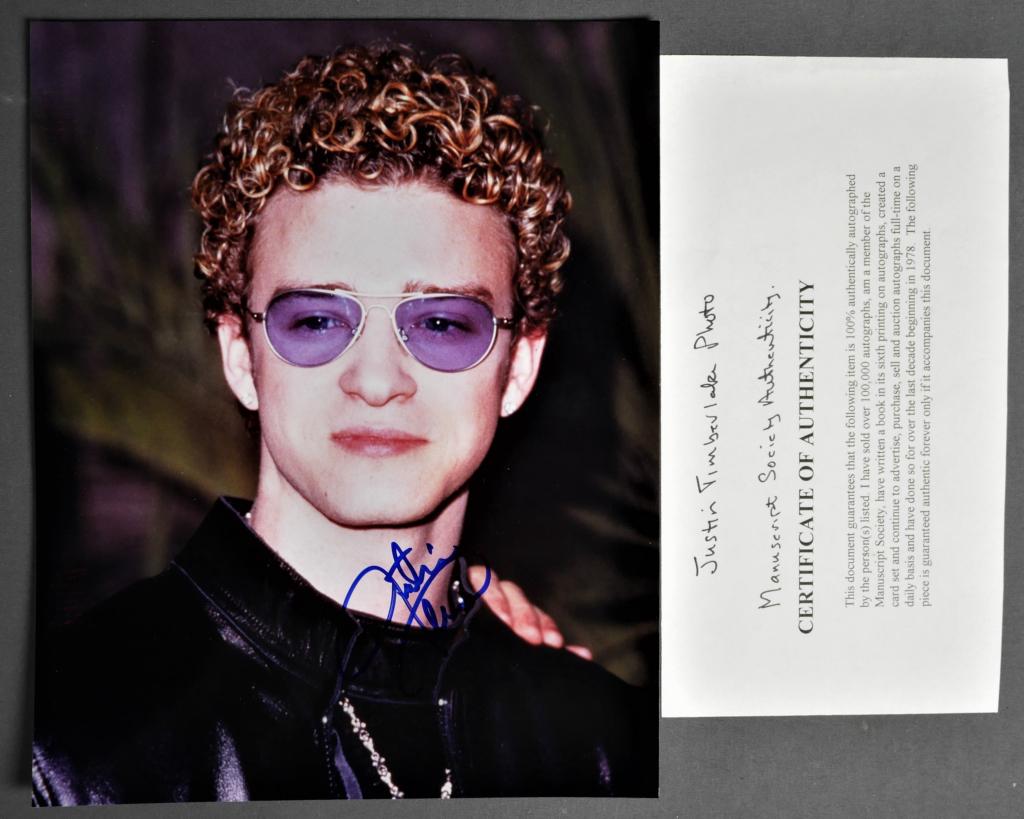 Justin Timberlake Photo
Manuscript Society Authenticity.
CERTIFICATE OF AUTHENTICITY
This document guarantees that the following item is 100% authentically autographed
by the person(s) listed. I have sold over 100,000 autographs, am a member of the
Manuscript Society, have written a book in its sixth printing on autographs, created a
card set and continue to advertise, purchase, sell and auction autographs full-time on a
daily basis and have done so for over the last decade beginning in 1978. The following
piece is guaranteed authentic forever only if it accompanies this document.